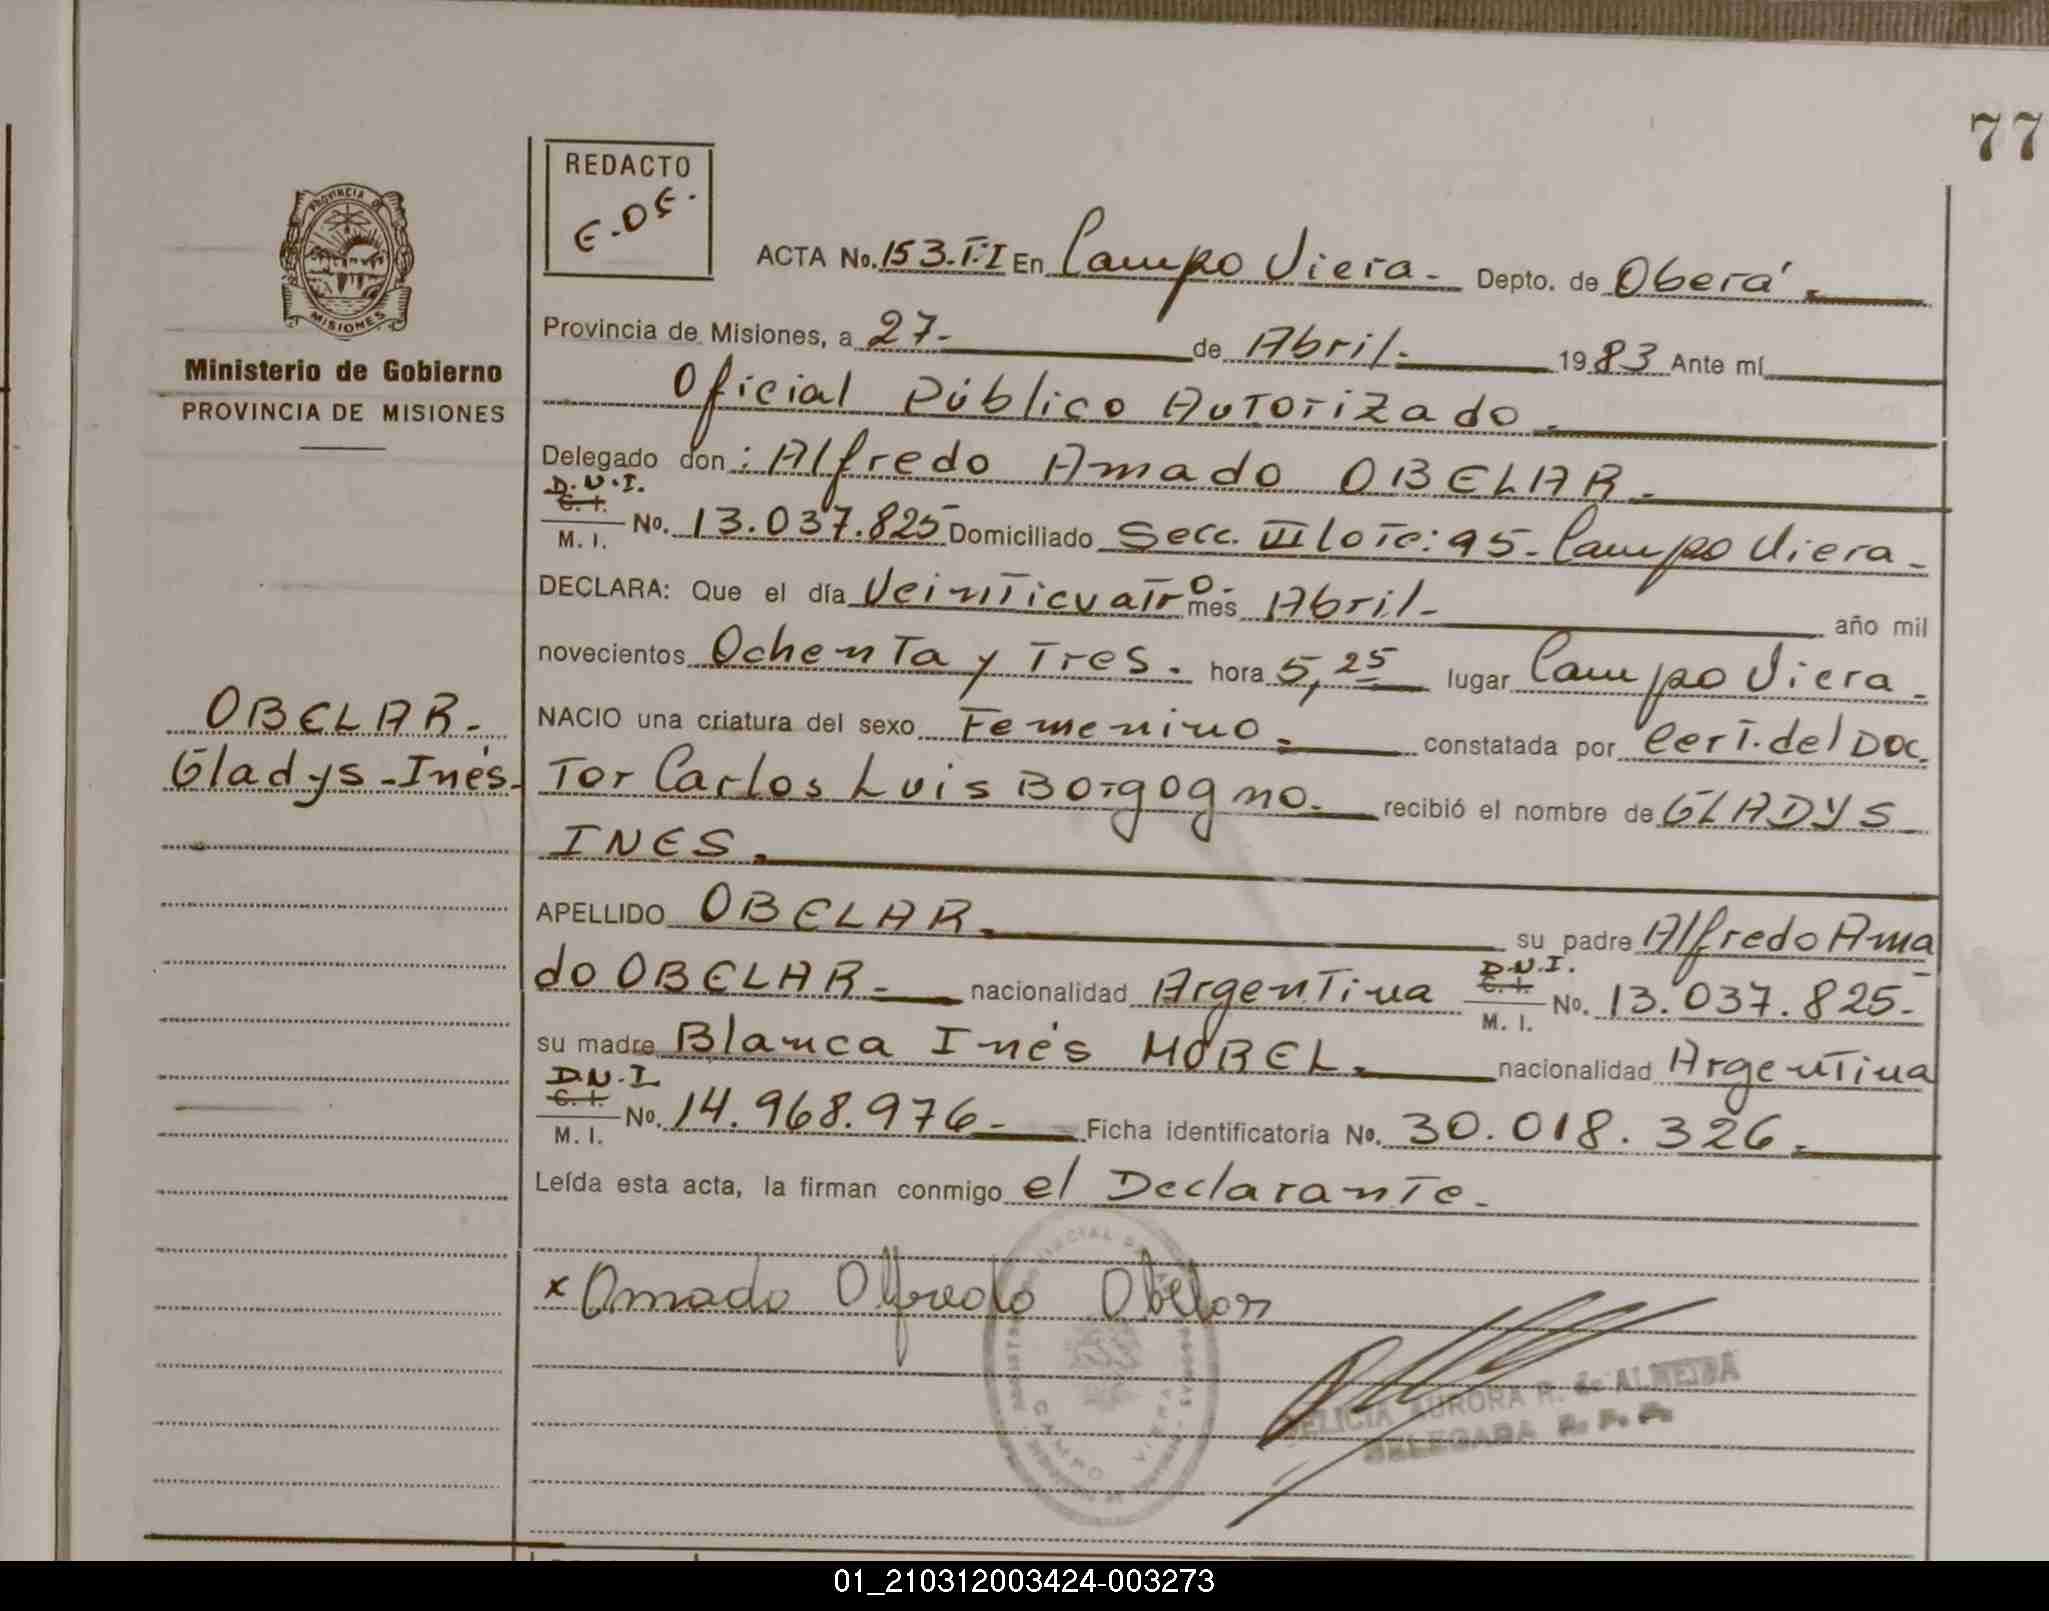 77
REDACTO
E.DE.
PROVINCIA DE
MISIONES
Ministerio de Gobierno
PROVINCIA DE MISIONES
ACTA No. 153.T.I En Campo Viera.- Depto. de Oberá.
Provincia de Misiones, a 27.- de Abril. 1983 Ante mí
Oficial Público Autorizado.
Delegado don: Alfredo Amado OBELAR.-
D.N.I.
C. I.
M. I. No. 13.037.825 Domiciliado Secc. III lote: 95.- Campo Viera.-
DECLARA: Que el día Veinticuatro.- mes Abril.- año mil
novecientos Ochenta y Tres.- hora 5,25 lugar Campo Viera.-
OBELAR.-
Gladys-Inés.-
NACIO una criatura del sexo Femenino.- constatada por Cert. del Doc
Tor Carlos Luis Borgogno.- recibió el nombre de GLADYS
INES.
APELLIDO OBELAR. su padre Alfredo Ama
do OBELAR.- nacionalidad Argentina D.N.I. C. I. M. I. No. 13.037.825.-
su madre Blanca Inés MOREL. nacionalidad Argentina
D.N.I.
C. I.
M. I. No. 14.968.976.- Ficha identificatoria No. 30.018.326.-
Leída esta acta, la firman conmigo el Declarante.-
x Amado Alfredo Obelar
CAMPO VIERA
DELICIA AURORA R. de ALMEIDA
DELEGADA R. P. P.
01_210312003424-003273